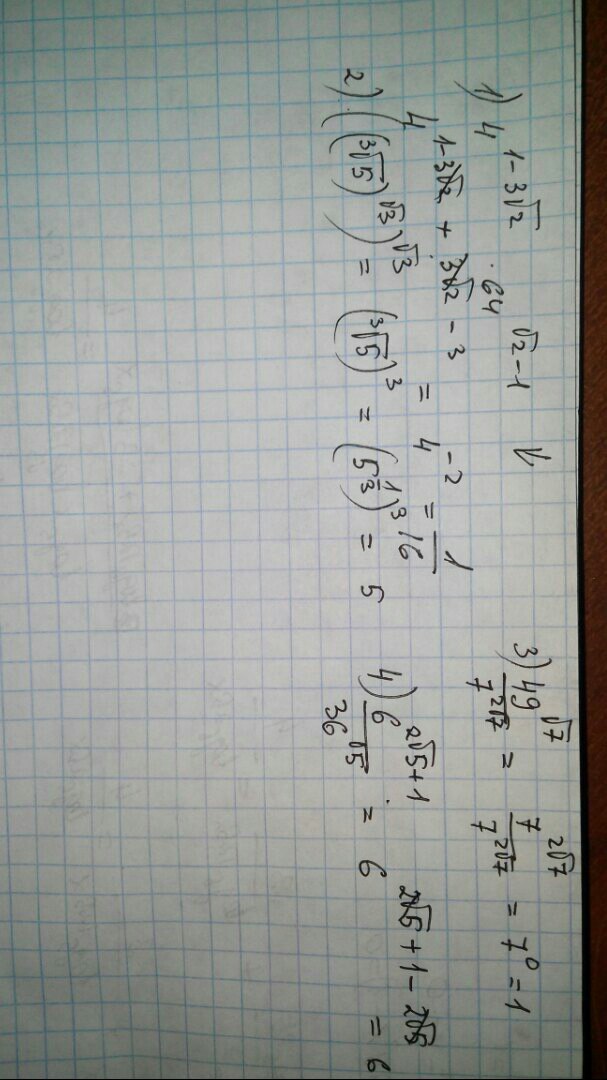 1) 4^(1-3√2) · 64^(√2-1) =
4^(1-3√2+3√2-3) = 4^(-2) = 1/16
2) ((³√5)^√3)^√3 = (³√5)^3 = (5^(1/3))^3 = 5
3) 49^√7 / 7^(2√7) = 7^(2√7) / 7^(2√7) = 7^0 = 1
4) 6^(2√5+1) / 36^√5 = 6^(2√5+1-2√5) = 6